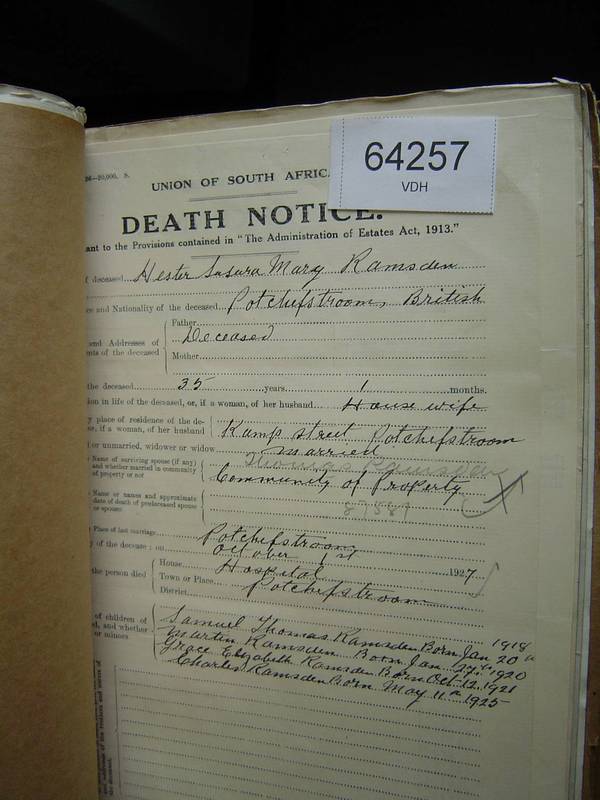 64257
VDH
26—20,000. S.
UNION OF SOUTH AFRICA
DEATH NOTICE.
ant to the Provisions contained in "The Administration of Estates Act, 1913."
of deceased Hester Susara Mary Ramsden
ce and Nationality of the deceased Potchefstroom, British
Father
and Addresses of Deceased
nts of the deceased
Mother
the deceased 35 years 1 months.
ion in life of the deceased, or, if a woman, of her husband House wife
y place of residence of the de-
se, if a woman, of her husband Kamp Street Potchefstroom
or unmarried, widower or widow married
Name of surviving spouse (if any) Thomas Ramsden
and whether married in community
of property or not Community of Property
Name or names and approximate
date of death of predeceased spouse
or spouses
Place of last marriage Potchefstroom
y of the decease: on October 1st 1927
House Hospital
the person died
Town or Place Potchefstroom
District
of children of Samuel Thomas Ramsden Born Jan 20th 1918
d, and whether Martin Ramsden Born Jan 27th 1920
or minors Grace Elizabeth Ramsden Born Oct 12 1921
Charles Ramsden Born May 11th 1925